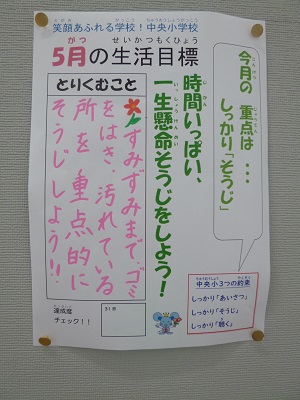 笑顔あふれる学校！中央小学校！
5月の生活目標
今月の 重点は・・・
しっかり「そうじ」
時間いっぱい、
一生懸命そうじをしよう！
とりくむこと
すみずみまで、ゴミ
をはき、汚れている
所を重点的に
そうじしよう！！
中央小３つの約束
しっかり「あいさつ」
しっかり「そうじ」
しっかり「聴く」
達成度
チェック！！
31日